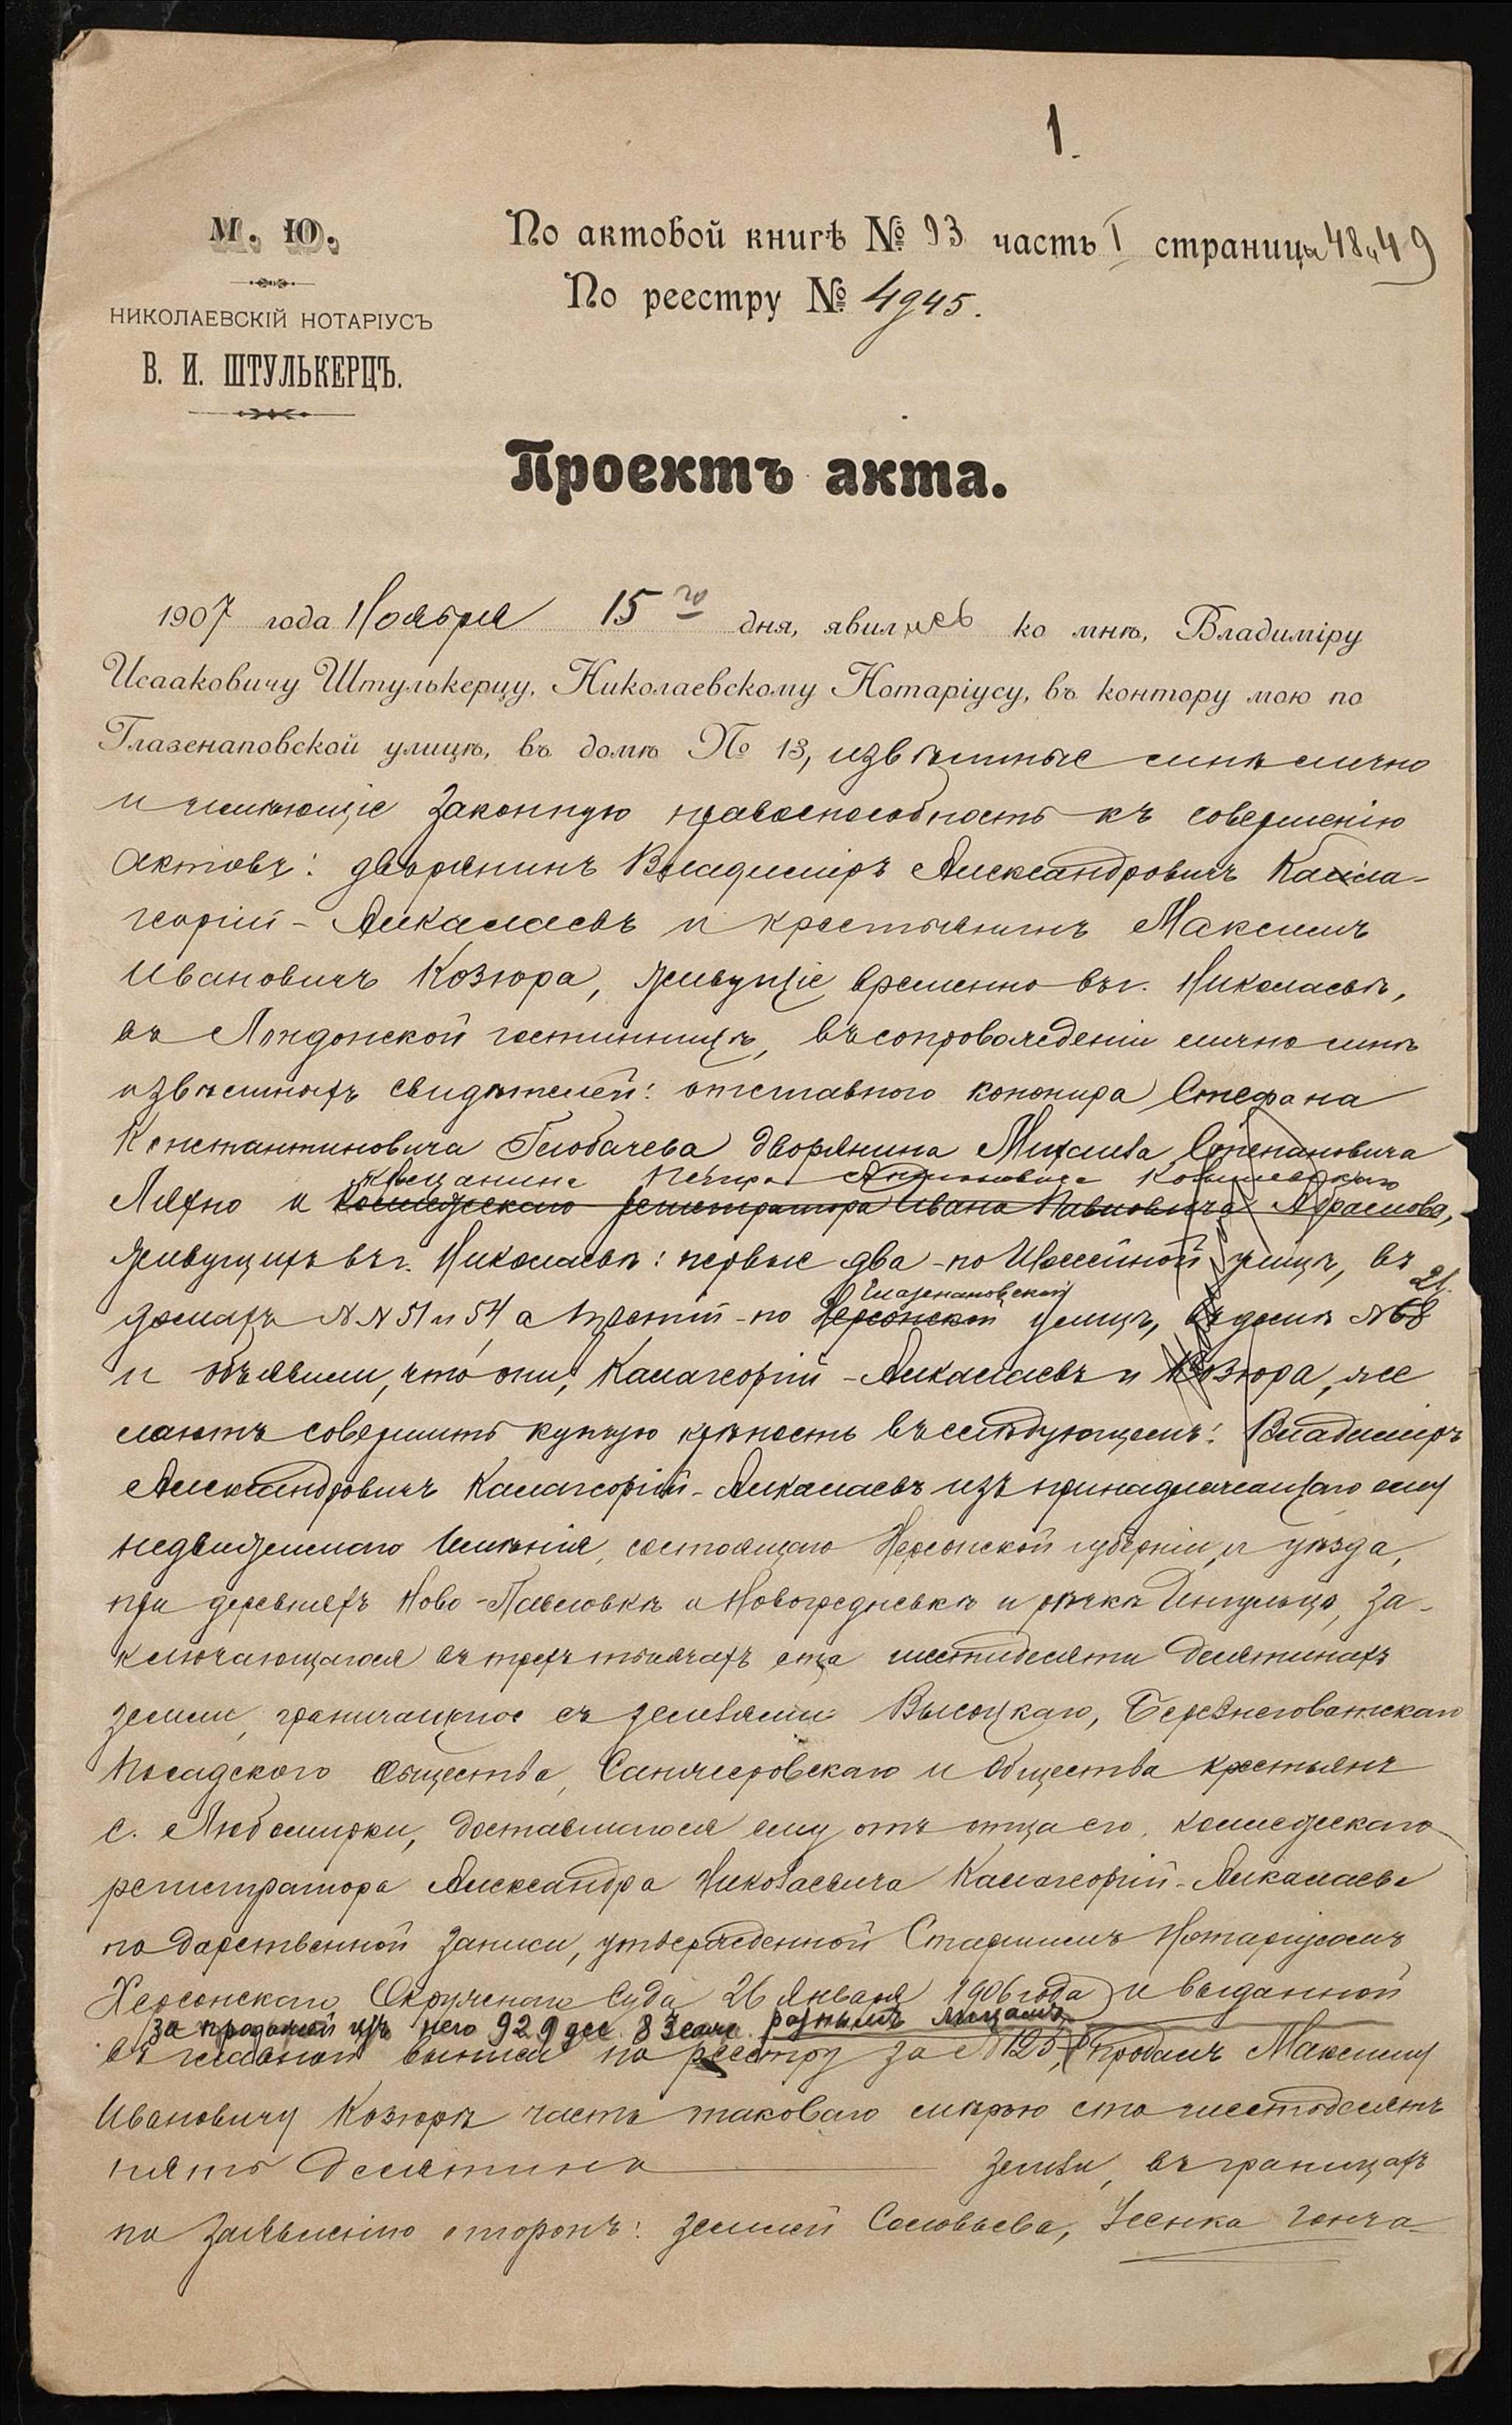 1.
М. Ю.
НИКОЛАЕВСКІЙ НОТАРІУСЪ
В. И. ШТУЛЬКЕРЦЪ.
По актовой книгѣ № 93 часть I страницы 48 и 49
По реестру № 4945.
Проектъ акта.
1907 года Ноября 15го дня, явились ко мнѣ, Владиміру
Исааковичу Штулькерцу, Николаевскому Нотаріусу, въ контору мою по
Глазенаповской улицѣ, въ домѣ № 13, извѣстные мнѣ лично
и имѣющіе законную правоспособность къ совершенію
актовъ: дворянинъ Владиміръ Александровичъ Калла-
георгій-Алкалаевъ и крестьянинъ Максимъ
Ивановичъ Козюра, живущіе временно въ г. Николаевѣ,
въ Лондонской гостинницѣ, въ сопровожденіи лично мнѣ
извѣстныхъ свидѣтелей: отставного Стефана
Константиновича Глобачева дворянина Михаила Степановича
мѣщанина Петра Антоновича
Ляхно и коллежскаго регистратора Ивана Павловича Абрамова,
живущихъ въ г. Николаевѣ: первые два - по улицѣ, въ
Глазенаповской 21.
домахъ N N 51 и 54, а третій - по Херсонской улицѣ, въ домѣ N 68
и объявили, что они, Калагеоргій-Алкалаевъ и Козюра, же
лаютъ совершить купчую крѣпость въ слѣдующемъ: Владиміръ
Александровичъ Калагеоргій-Алкалаевъ изъ принадлежащаго ему
недвижимаго имѣнія, состоящаго Херсонской губерніи и уѣзда,
при деревняхъ Ново-Павловкѣ и и рѣчкѣ Ингульцѣ, за-
ключающагося въ трехъ тысячахъ ста шестидесяти десятинахъ
земли, граничащное съ землями: Высоцкаго, Березнеговатскаго
Посадского Общества, и Общества крестьянъ
с. Любомирки, доставшагося ему отъ отца его, коллежскаго
регистратора Александра Николаевича Калагеоргій-Алкалаева
по дарственной записи, утвержденной Старшимъ Нотаріусомъ
Херсонскаго Окружнаго Суда 26 Января 1906 года и выданной
за продажей изъ него 929 дес. 83 саж. разнымъ лицамъ,
въ главной выписи по реестру за N 125, продалъ Максиму
Ивановичу Козюрѣ часть таковаго мѣрою сто шестьдесятъ
пять десятинъ земли, въ границахъ
по заявленію сторонъ: землей Соловьева, Усенка Гонча-